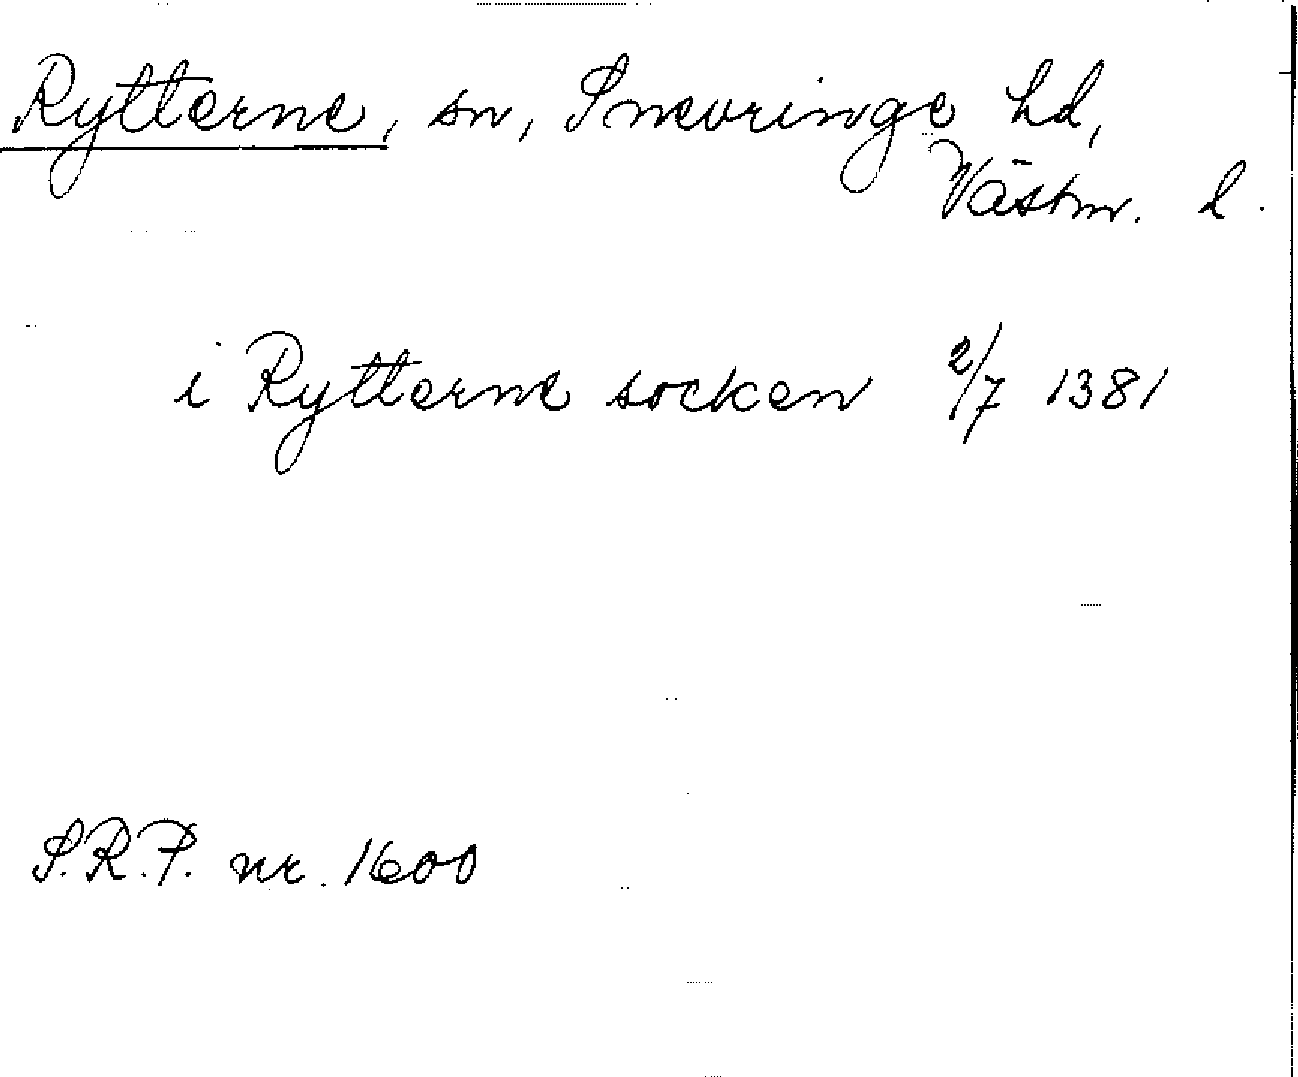 Rytterne, sn, Snevringe hd,
Västm. l.
i Rytterne socken 2/7 1381
S.R.P. nr. 1600